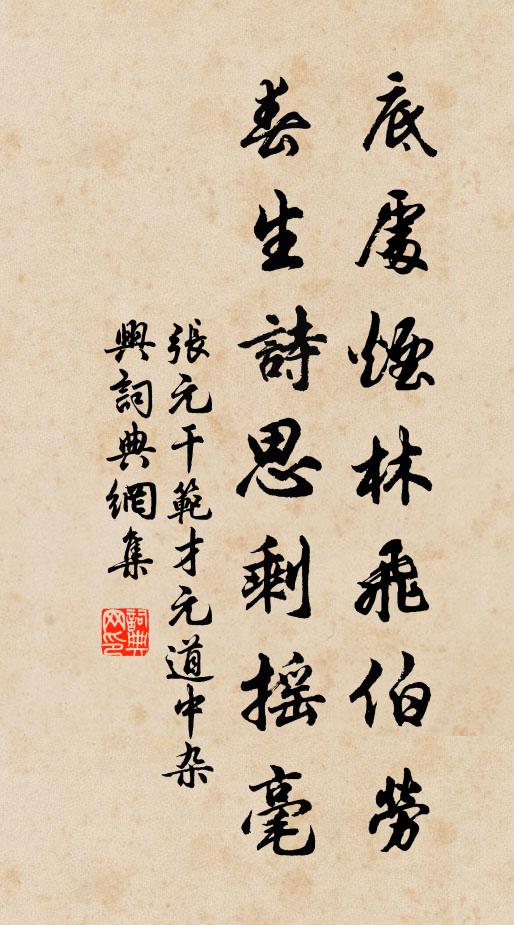 底處煙林飛伯勞
春生詩思剩搖毫
張元干範才元道中杂
興詞典網集
詞典
网印